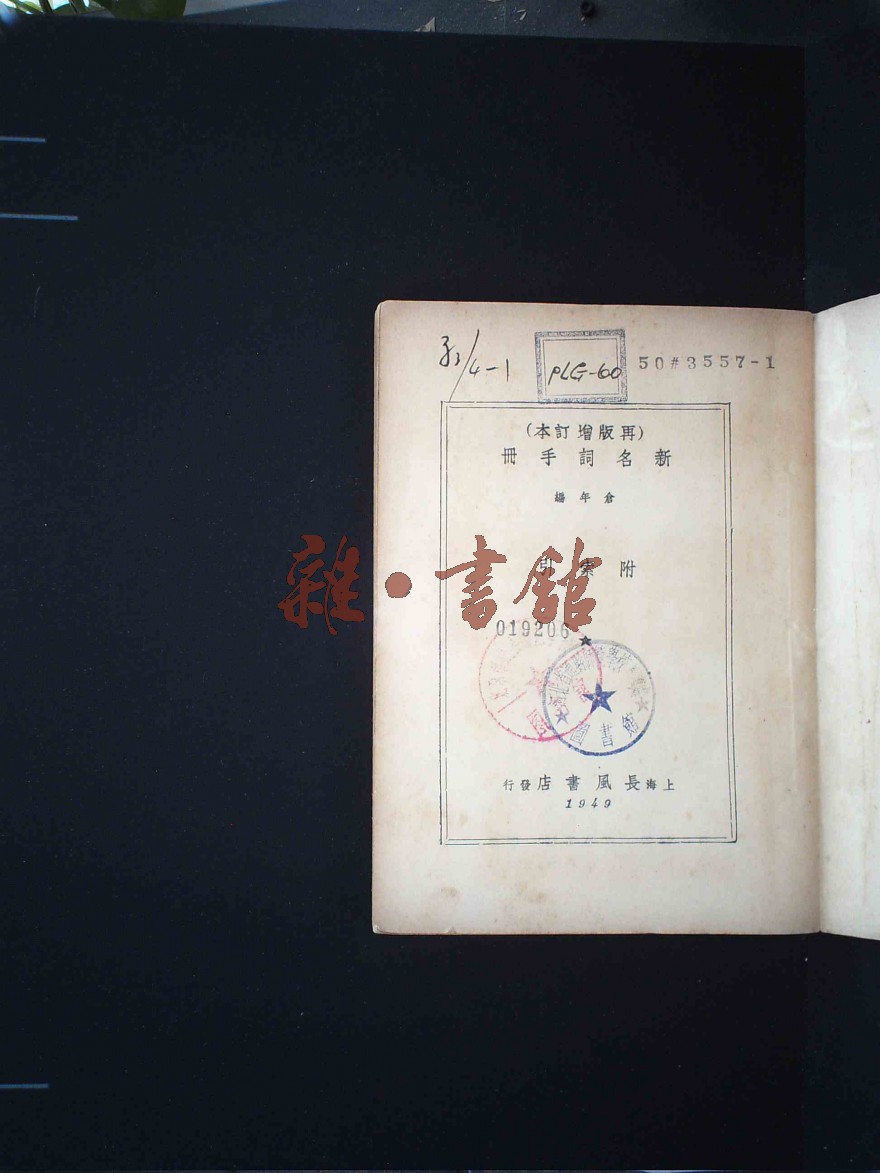 4-1
PLG-60
50#3557-1
(再版增訂本)
新名詞手冊
倉年編
附索引
雜·書館
019206
圖書館
上海長風書店發行
1949